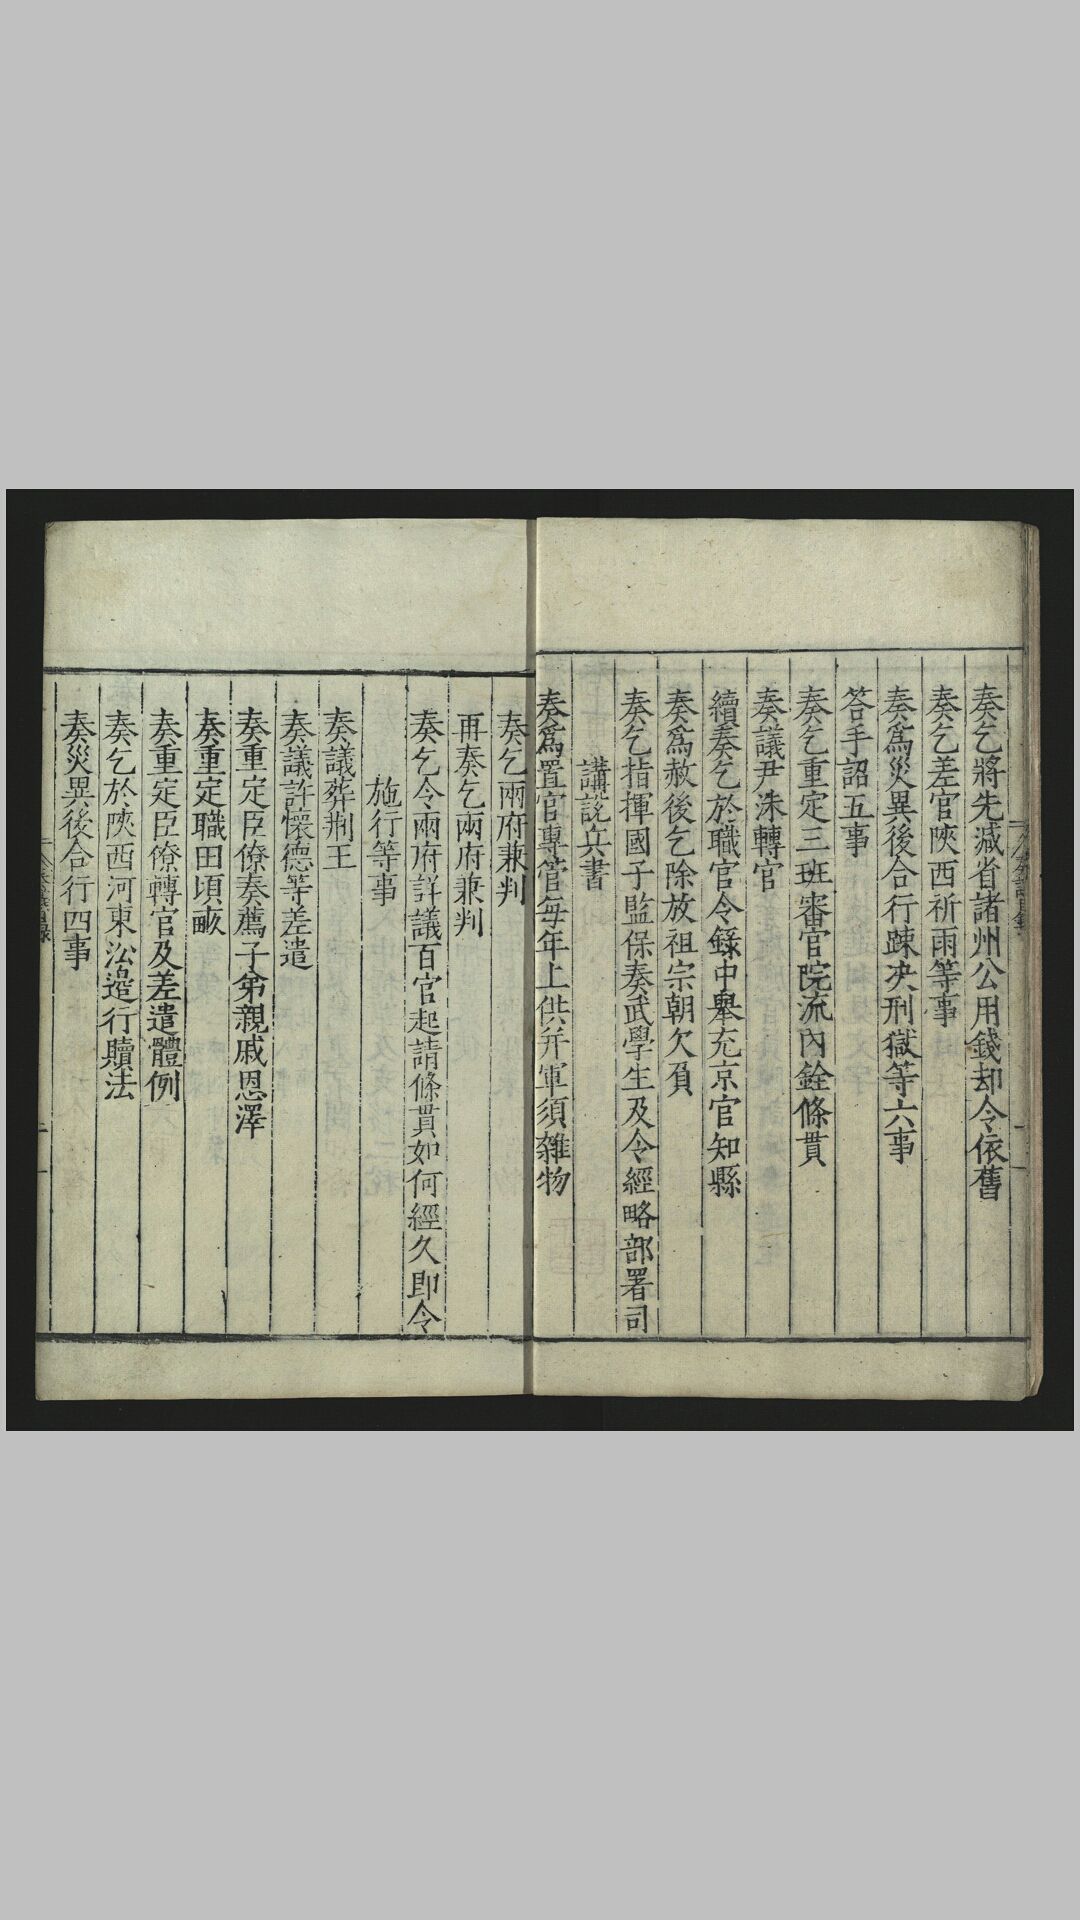 奏乞將先減省諸州公用錢却令依舊
奏乞差官陝西祈雨等事
奏爲災異後合行踈决刑獄等六事
答手詔五事
奏乞重定三班審官院流內銓條貫
奏議尹洙轉官
續奏乞於職官令錄中舉充京官知縣
奏爲赦後乞除放祖宗朝欠負
奏乞指揮國子監保奏武學生及令經略部署司
講說兵書
奏爲置官專管每年上供并軍須雜物
奏乞兩府兼判
再奏乞兩府兼判
奏乞令兩府詳議百官起請條貫如何經久即令
施行等事
奏議葬荆王
奏議許懷德等差遣
奏重定臣僚奏薦子弟親戚恩澤
奏重定職田頃畝
奏重定臣僚轉官及差遣體例
奏乞於陝西河東沿邉行贖法
奏災異後合行四事